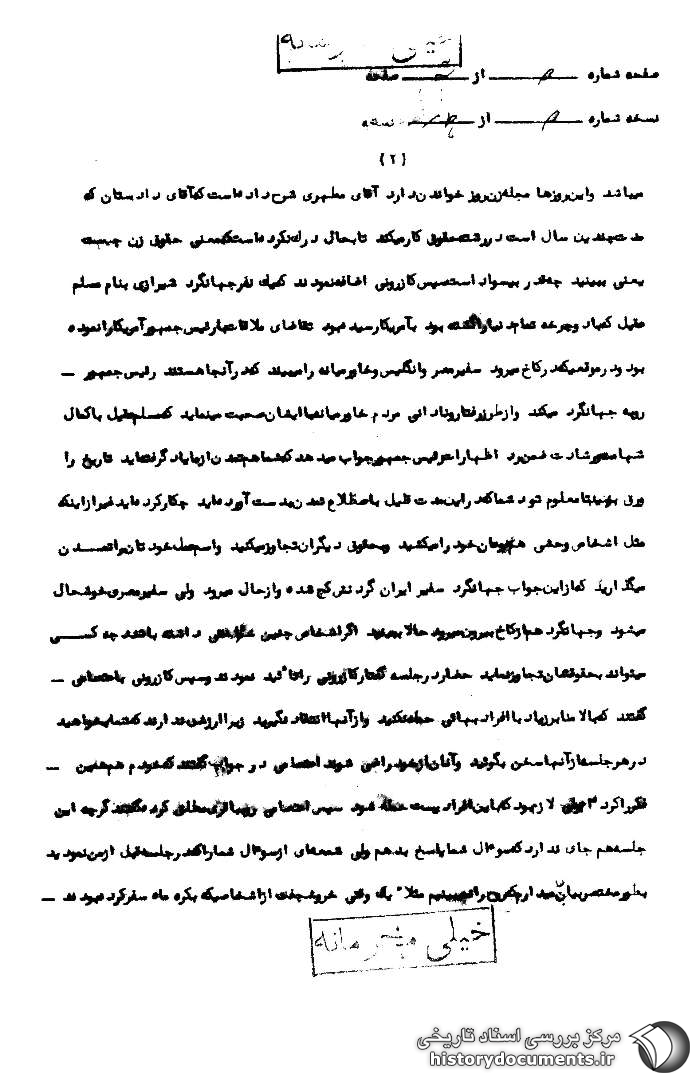 خیلی محرمانه
صفحه شماره از صفحه
نسخه شماره از نسخه
(۲)
میباشد واین روزها مجله زن روز خواندن دارد آقای مطهری شرح داده است که آقای دادستان که
مدت چندین سال است در رشته حقوق کار میکند تابحال درک نکرده است که معنی حقوق زن چیست
یعنی ببینید چقدر بیسواد است سپس کازرونی اضافه نمودند که یک نفر جهانگرد شیرازی بنام مسلم
عقیل که باد وچرخه تمام دنیا را گشته بود بآمریکا رسیده بود تقاضای ملاقات با رئیس جمهور آمریکا را نموده
بود و در موقعیکه در کاخ میرود سفیر مصر وانگلیس و خاورمیانه را میبیند که در آنجا هستند رئیس جمهور —
روبه جهانگرد میکند واز طرز رفتار ونادانی مردم خاورمیانه با ایشان صحبت مینماید که مسلم عقیل باکمال
شهامت ضمن رد اظهارات رئیس جمهور جواب میدهد که شما هم تمدن از ما یاد گرفته اید تاریخ را
ورق بزنید تا معلوم شود شما که در این مدت قلیل باصطلاع تمدن بدست آورده اید چکار کرده اید غیر از اینکه
مثل اشخاص وحشی همنوعان خود را میکشید وبحقوق دیگران تجاوز میکنید واسم عمل خودتان را تمدن
میگذارید که از این جواب جهانگرد سفیر ایران گردنش کج شده واز حال میرود ولی سفیر مصری خوشحال
میشود وجهانگرد هم از کاخ بیرون میرود حالا ببینید اگر اشخاص چنین داشته باشند چه کسی
میتواند بحقوقشان تجاوز نماید حضار در جلسه گفتار کازرونی را تائید نمودند وسپس کازرونی باختصاصی —
گفتند که بالا منابر زیاد با افراد بهائی حمله نکنید واز آنها انتقاد نگیرید زیرا ارزش ندارند که شما بخواهید
در هر جلسه از آنها سخن بگوئید وآنان از خود راضی شوند اختصاصی در جواب گفتند که خودم هم همین —
فکر را کردم لازم بود که باین افراد پست حمله شود سپس اختصاصی گرچه این
جلسه هم جای ندارد که سوال شما پاسخ بدهم ولی شمه ای از سوال شما را که در جلسه قبل از من نمودید
بطور مختصر بیان میدارم مثلا یک وقتی خروشچف از اشخاصیکه بکره ماه سفر کرده بودند —
خیلی محرمانه
مرکز بررسی اسناد تاریخی
historydocuments.ir